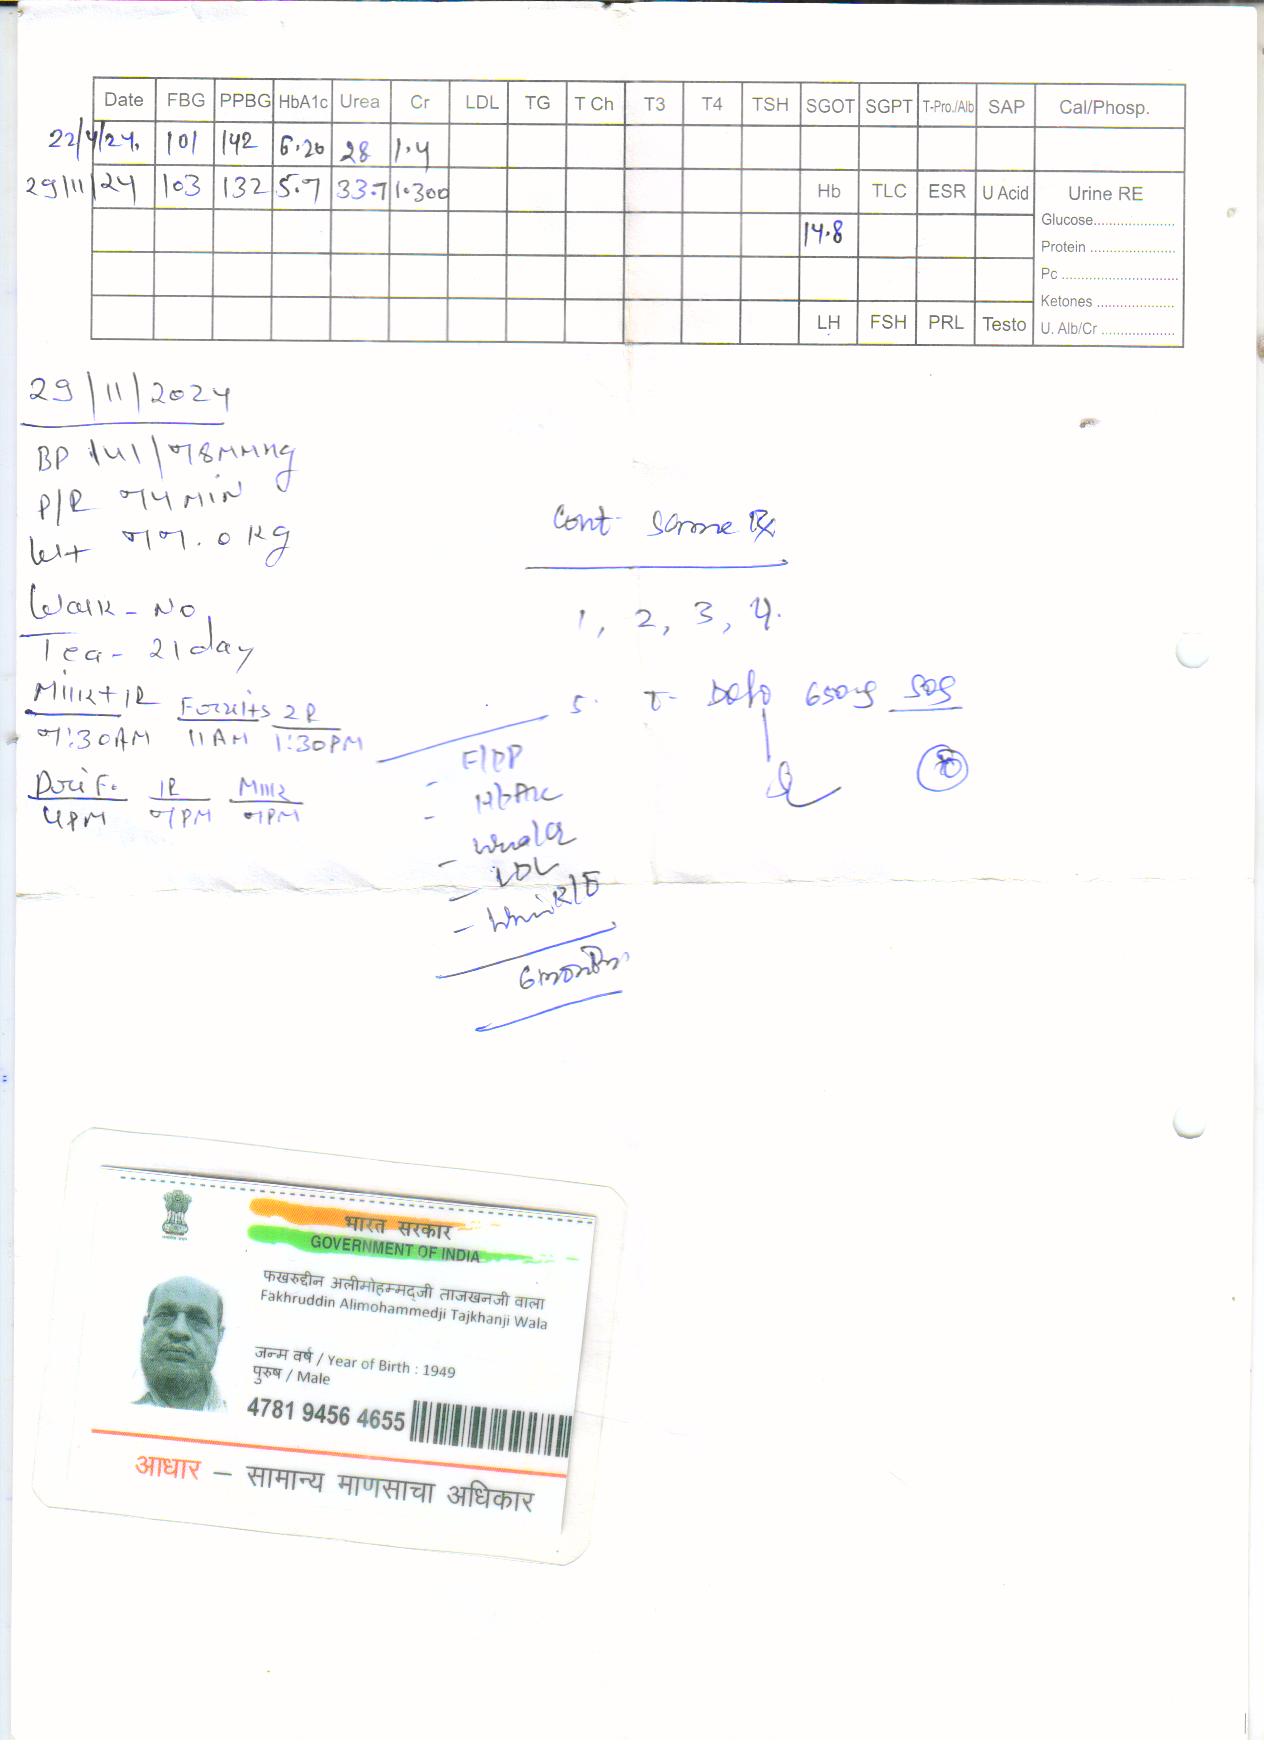 Date FBG PPBG HbA1c Urea Cr LDL TG T Ch T3 T4 TSH SGOT SGPT T-Pro./Alb SAP Cal/Phosp.
22/4/24. 101 142 6.20 28 1.4
29/11/24 103 132 5.7 33.7 1.300
Hb TLC ESR U Acid Urine RE
14.8
Glucose....................
Protein ....................
Pc ............................
Ketones ..................
LH FSH PRL Testo
U. Alb/Cr ..................
29/11/2024
BP 141/78MMHg
P/R 74 MIN
Wt 77.0 KG
Walk - No
Tea - 2/day
Milk+1R Fruits 2R
7:30AM 11AM 1:30PM
1R Milk
4PM 7PM 9PM
Cont Same Rx
1, 2, 3, 4.
5. T. Dolo 650mg SOS
F/PP
- HbA1c
- Urea/Cr
- LDL
- Urine R/E
6 months
भारत सरकार
GOVERNMENT OF INDIA
फखरुद्दीन अलीमोहम्मद्जी ताजखनजी वाला
Fakhruddin Alimohammedji Tajkhanji Wala
जन्म वर्ष / Year of Birth : 1949
पुरुष / Male
4781 9456 4655
आधार – सामान्य माणसाचा अधिकार